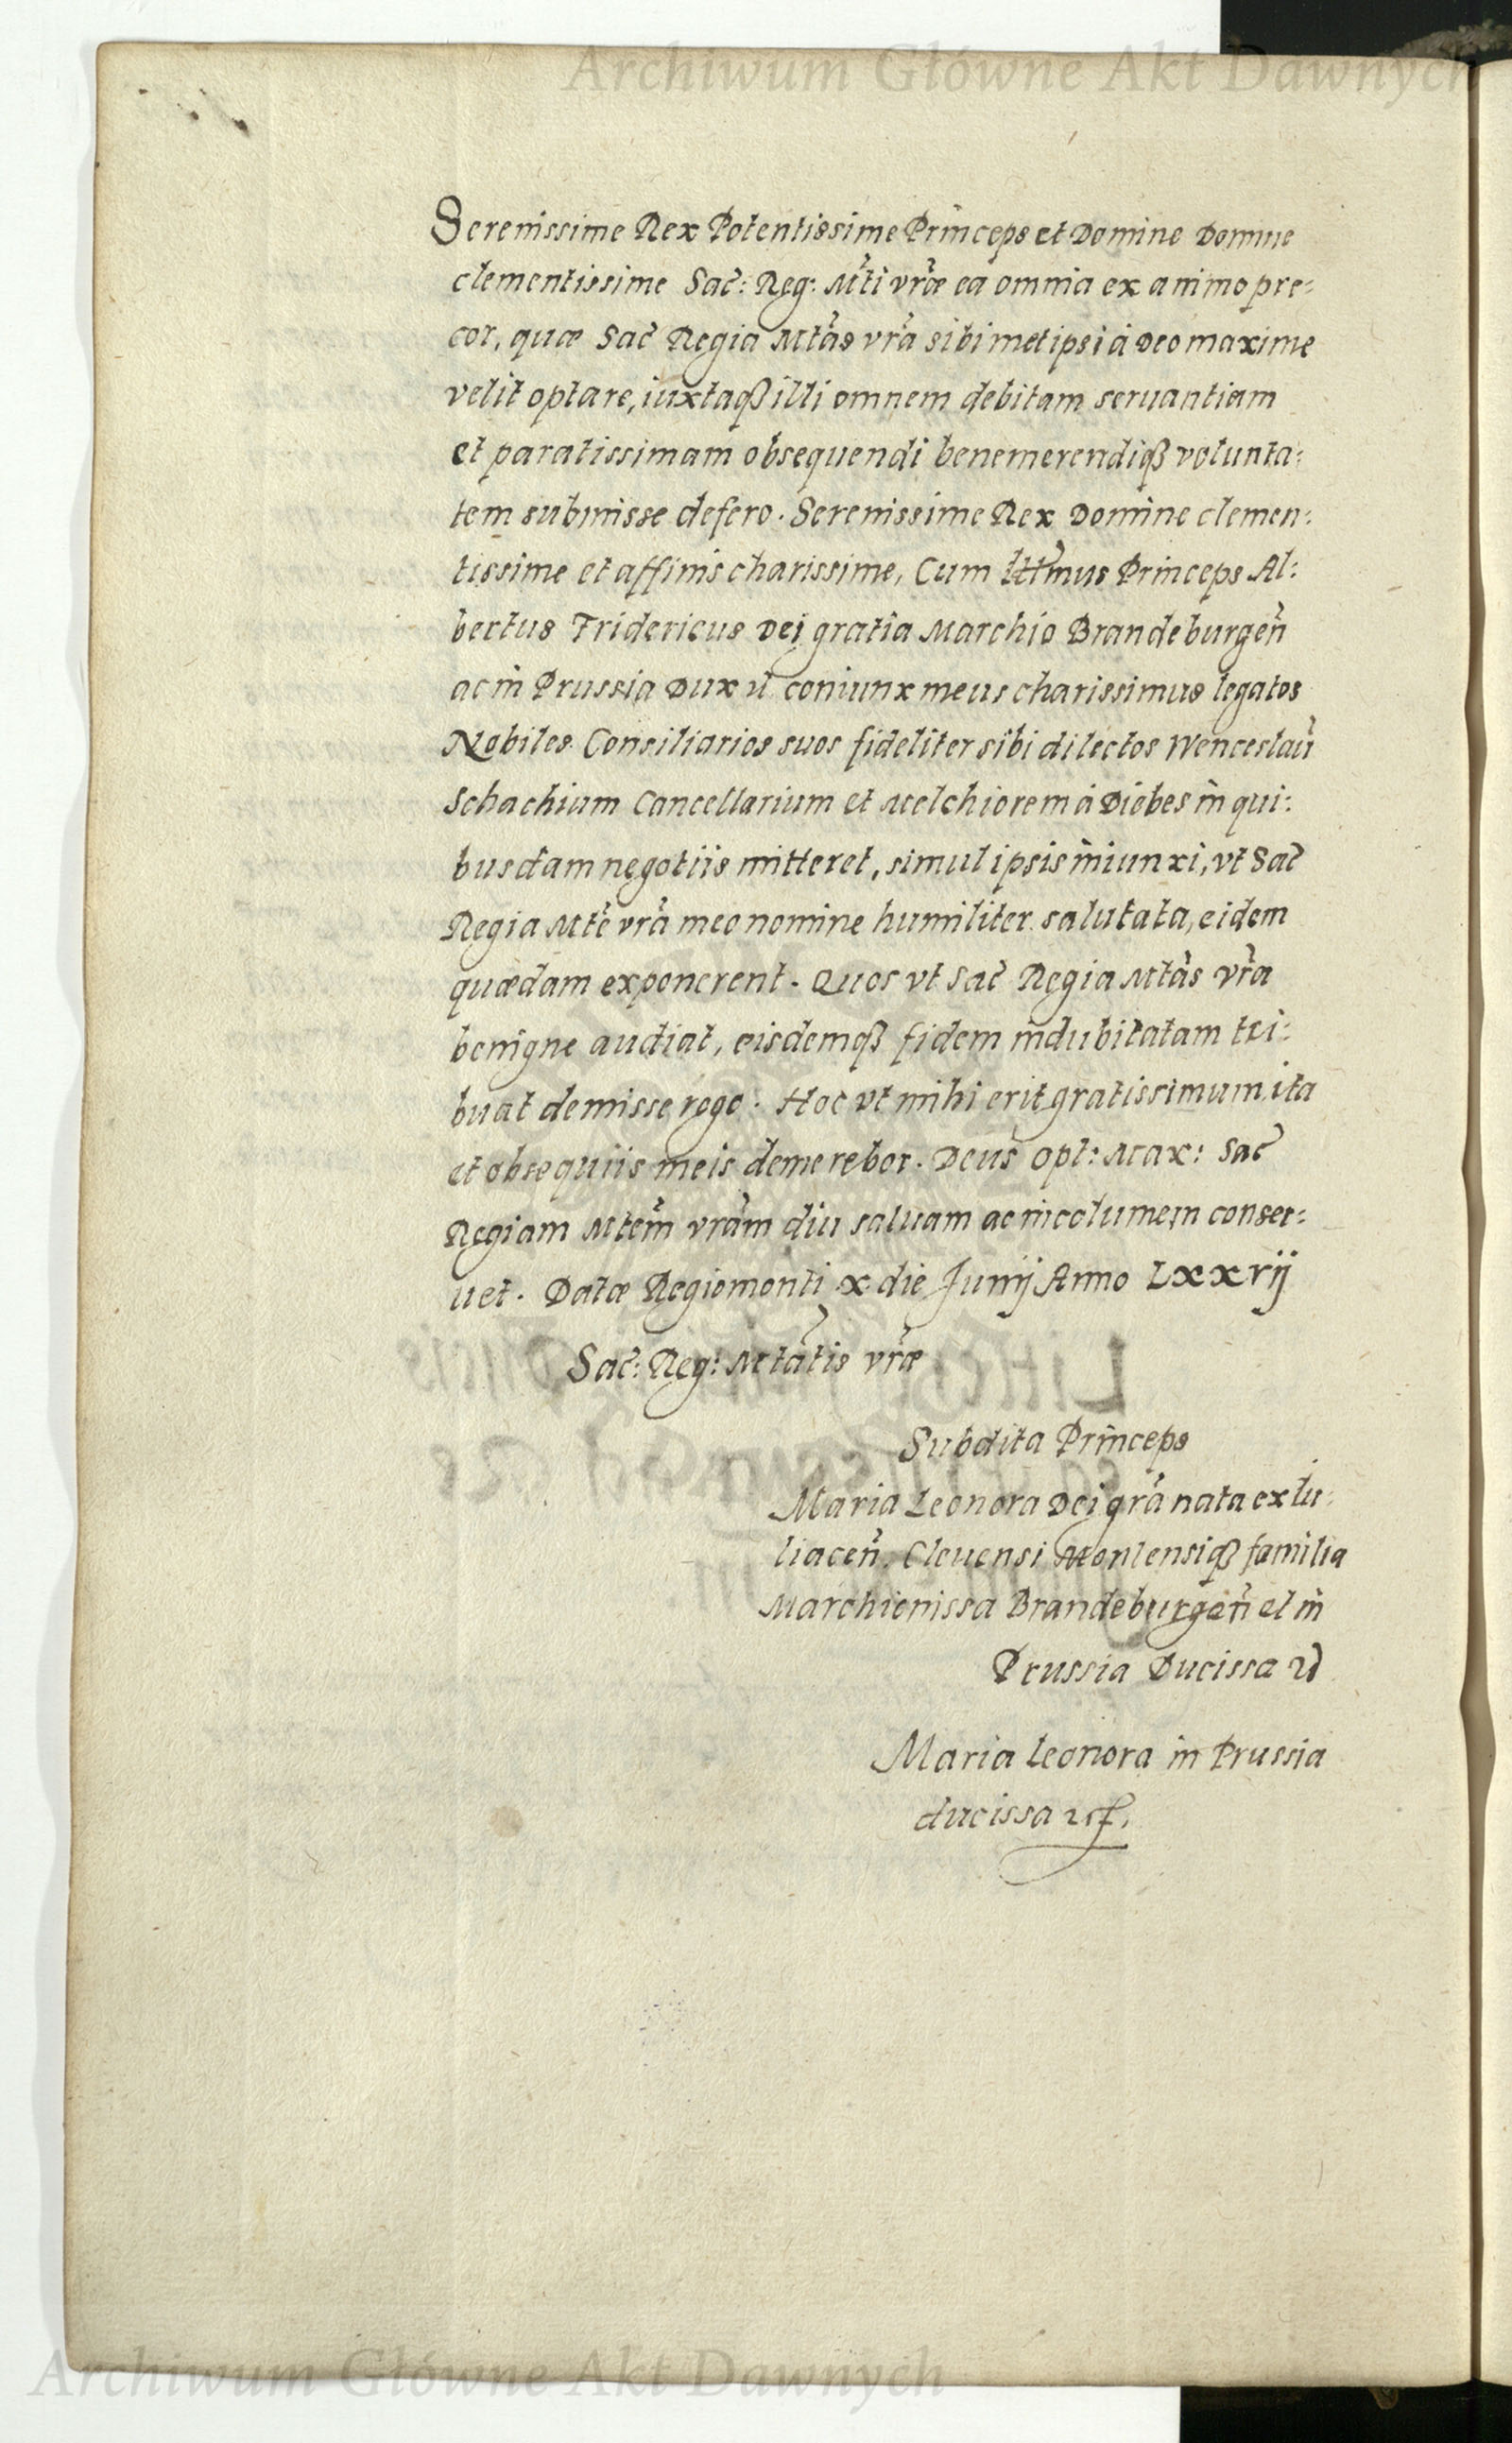 Archiwum Główne Akt Dawnych
Serenissime Rex Potentissime Princeps et Domine Domine
clementissime Sac̃: Reg: Mt̃i vr̃æ ea omnia ex animo pre:
cor, quæ Sac̃ Regia Mtãs vrã sibimet ipsi à Deo maxime
velit optare, iuxtaqꝫ illi omnem debitam seruantiam
et paratissimam obsequendi benemerendiqꝫ volunta:
tem submisse defero. Serenissime Rex Domine clemen:
tissime et affinis charissime, Cum Illm̃us Princeps Al:
bertus Fridericus Dei gratia Marchio Brandeburgeñ
ac in Prussia Dux coniunx meus charissimus legatos
Nobiles Consiliarios suos fideliter sibi dilectos Wenceslaũ
Schachium Cancellarium et Melchiorem à Diebes in qui:
busdam negotiis mitteret, simul ipsis iniunxi, vt Sac̃
Regia Mtẽ vrã meo nomine humiliter salutata, eidem
quædam exponerent. Quos vt Sac̃ Regia Mtãs vr̃a
benigne audiat, eisdemqꝫ fidem indubitatam tri:
buat demisse rogo. Hoc vt mihi erit gratissimum, ita
et obsequiis meis demerebor. Deus Opt: Max: Sac̃
Regiam Mtem̃ vrãm diu saluam ac incolumem conser:
uet. Datæ Regiomonti x die Junij Anno Lxxvij
Sac̃: Reg: Mtãtis vr̃æ
Subdita Princeps
Maria Leonora Dei grã nata ex Iu:
liaceñ. Cleuensi Montensiqꝫ familia
Marchionissa Brandeburgeñ et in
Prussia Ducissa
Maria Leonora in Prussia
ducissa
Archiwum Główne Akt Dawnych